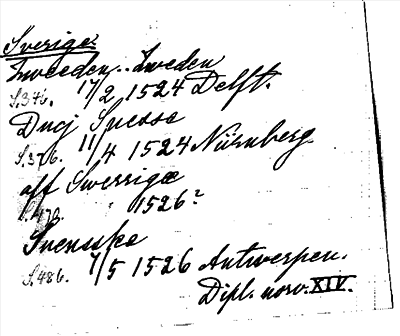 Sverige.
Zweeden.. Zweden
S.346. 17/2 1524 Delft.
Ducj Suesse
S.376. 11/4 1524 Nürnberg
aff Swerrigæ
S.472. " 1526?
Svensske
S.486. 7/5 1526 Antwerpen.
Dipl. norv. XIV.